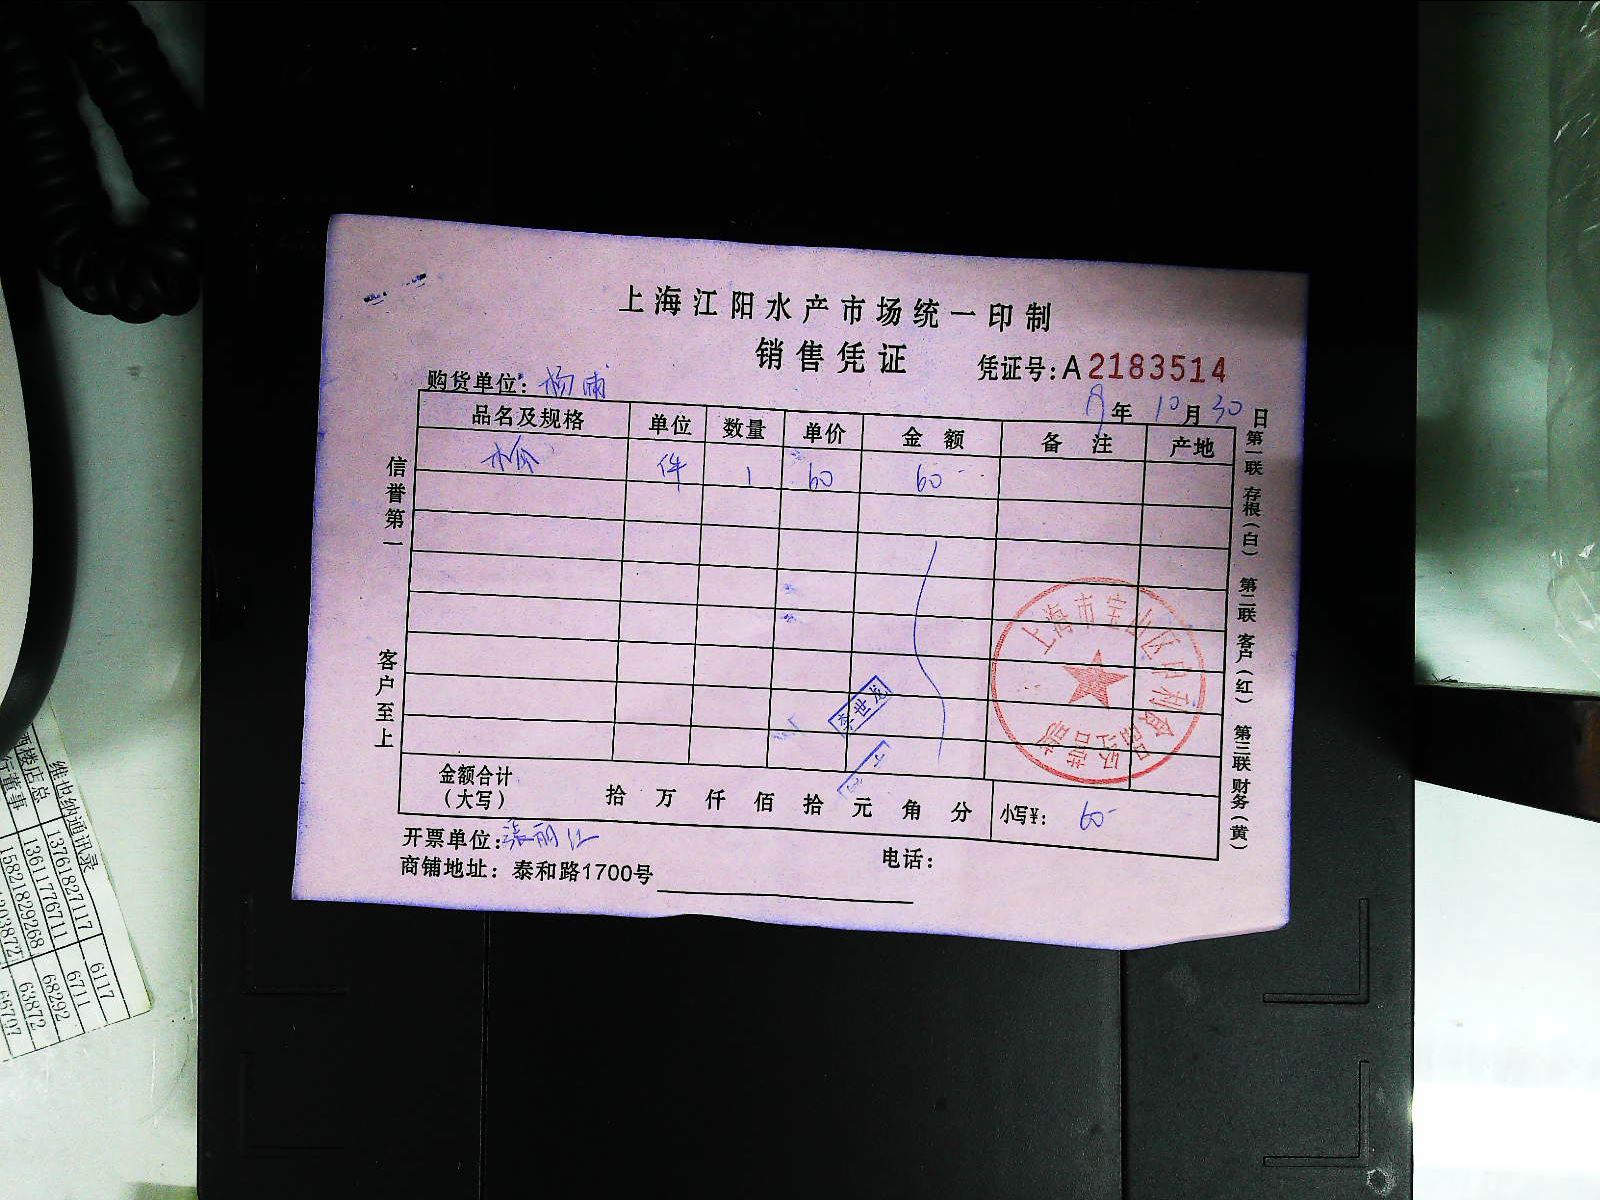 上海江阳水产市场统一印制
销售凭证
凭证号:A 2183514
购货单位: 杨浦
年 10月30日
品名及规格 单位 数量 单价 金额 备注 产地
件 1 60 60
信誉第一
客户至上
第一联 存根(白) 第二联 客户(红) 第三联 财务(黄)
李世龙
上海市宝山区
金额合计
(大写)
拾 万 仟 佰 拾 元 角 分 小写¥: 60
开票单位: 张丽红
电话:
商铺地址: 泰和路1700号
维也纳通讯录
酒楼店总 13761827117 6117
13611776711 6711
15821829268 68292
63872